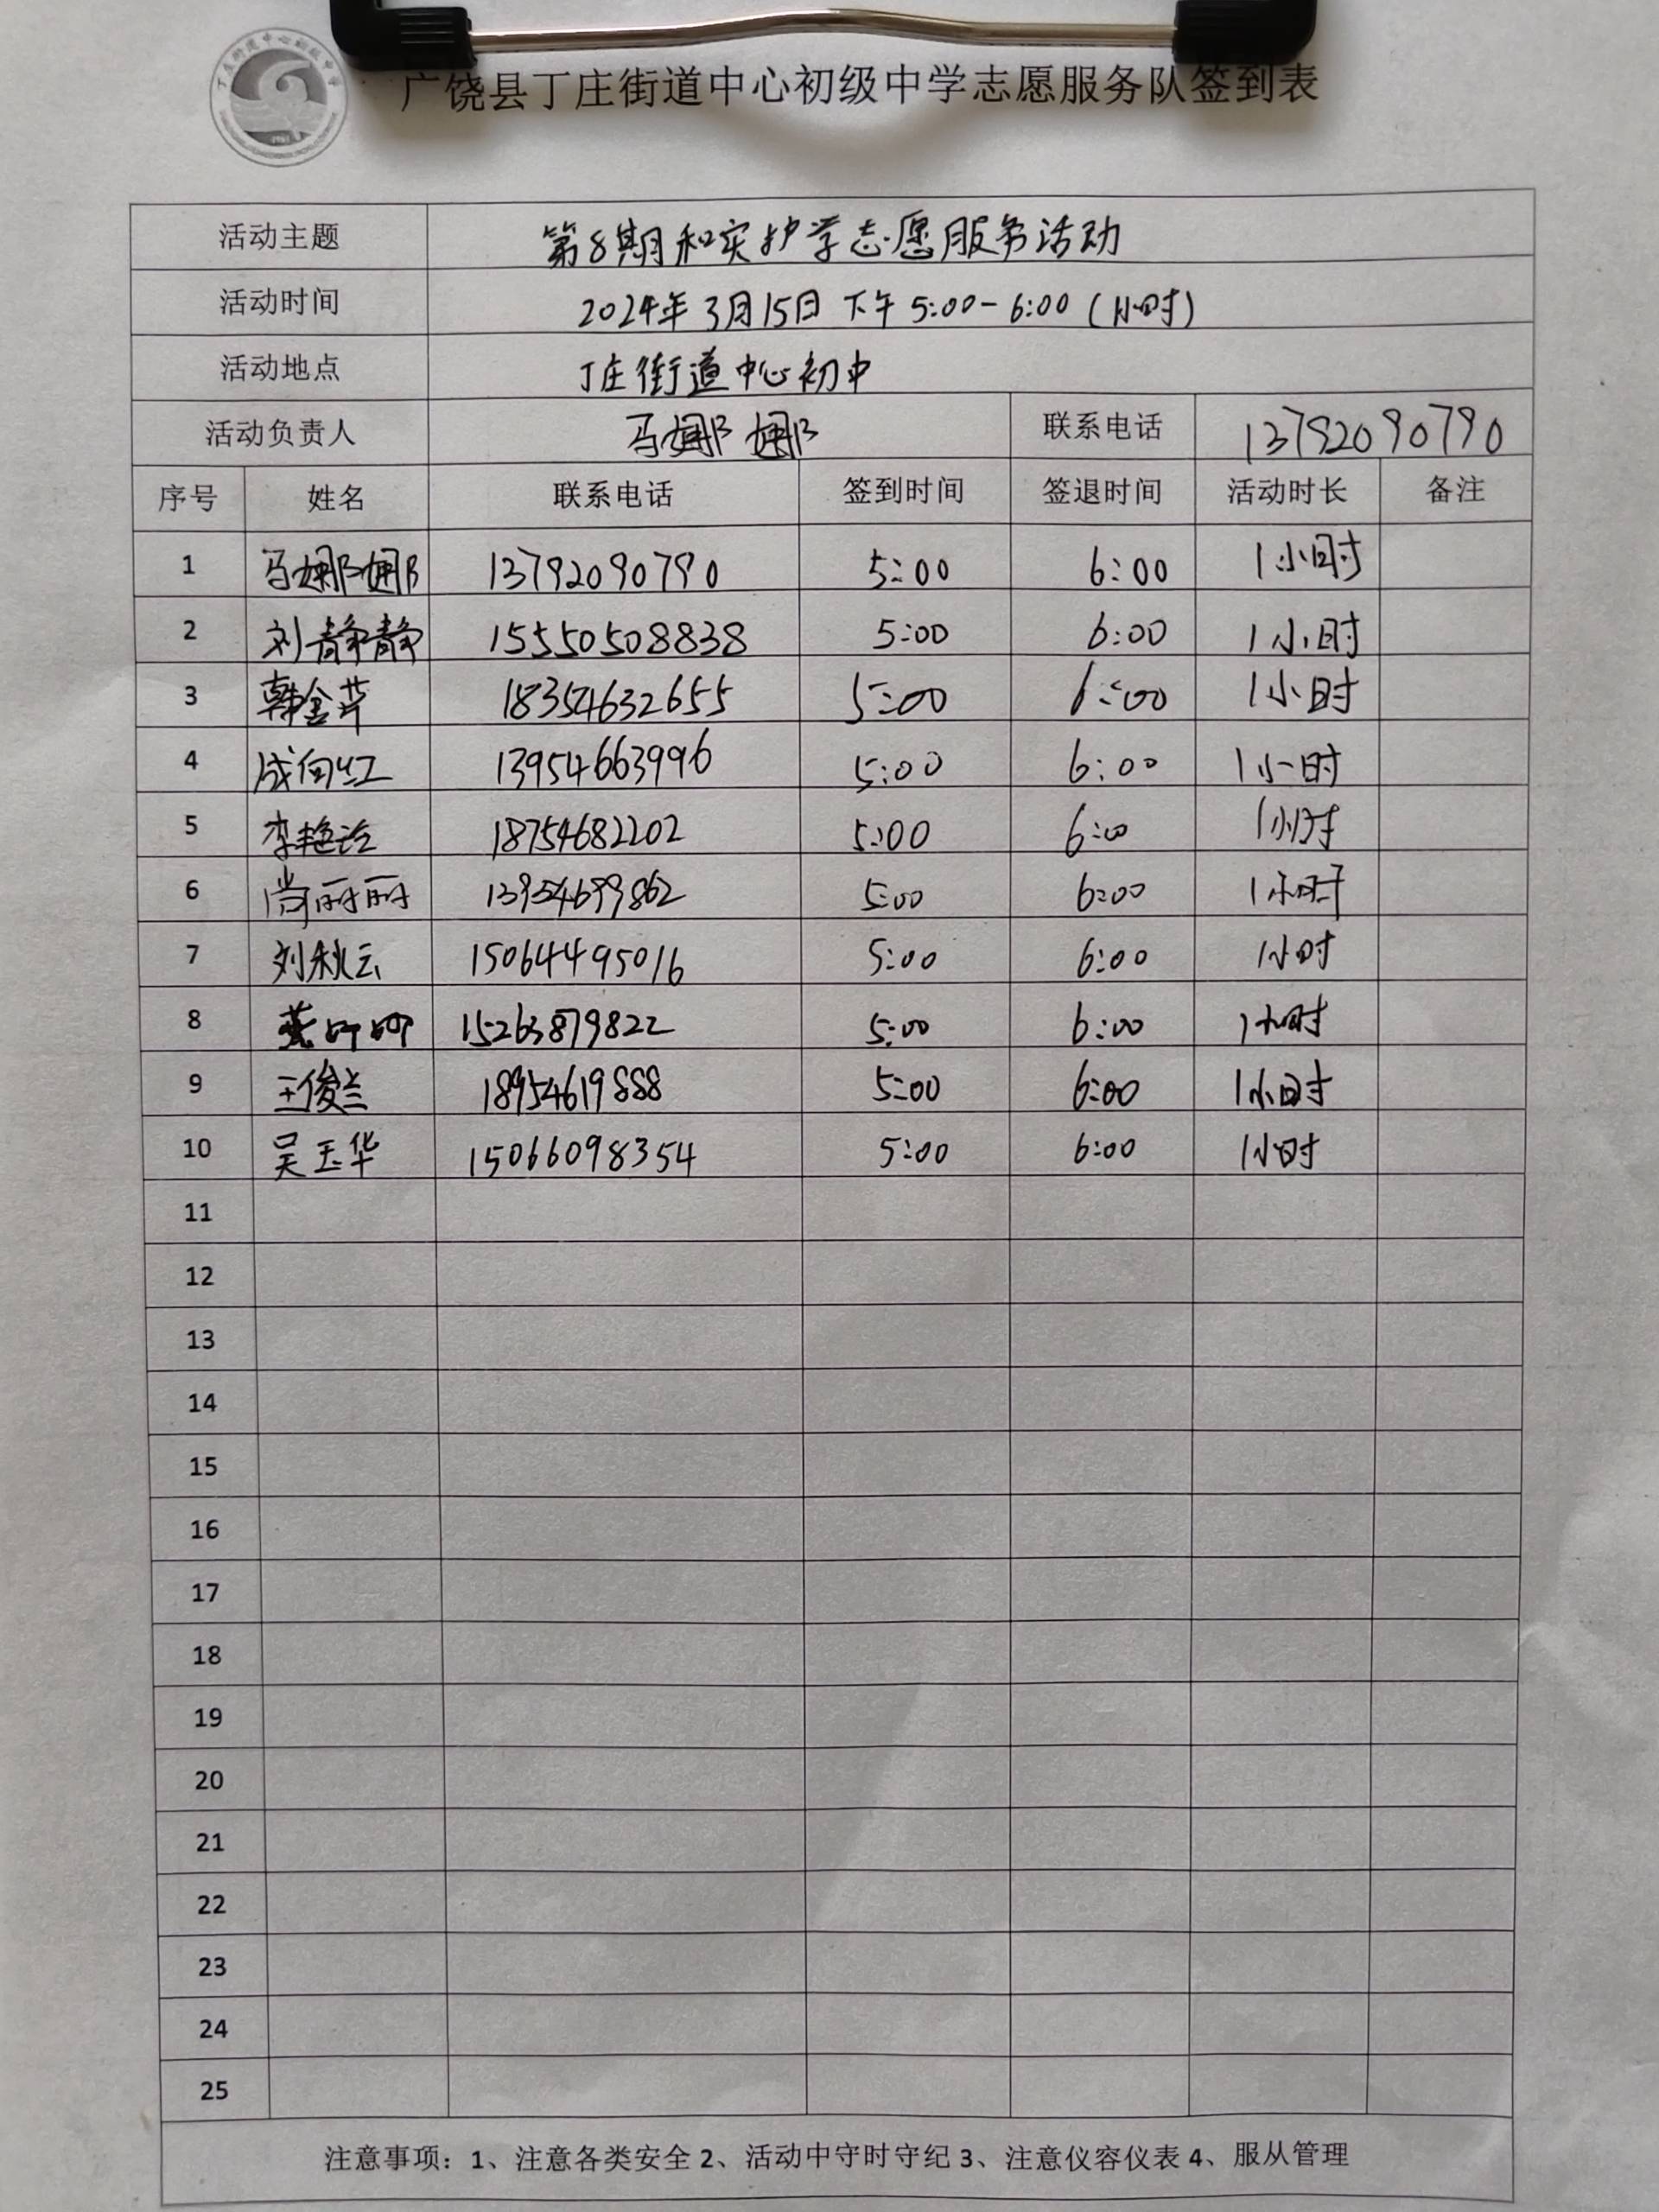 广饶县丁庄街道中心初级中学志愿服务队签到表
活动主题 第8期和实护学志愿服务活动
活动时间 2024年3月15日 下午 5:00-6:00 (1小时)
活动地点 丁庄街道中心初中
活动负责人 马娜娜 联系电话 13792090790
序号 姓名 联系电话 签到时间 签退时间 活动时长 备注
1 马娜娜 13792090790 5:00 6:00 1小时
2 刘静静 15550508838 5:00 6:00 1小时
3 韩金芹 18354632655 5:00 6:00 1小时
4 成向红 13954663996 5:00 6:00 1小时
5 李艳 18754682202 5:00 6:00 1小时
6 尚丽丽 13954699862 5:00 6:00 1小时
7 刘秋云 15064495016 5:00 6:00 1小时
8 15263879822 5:00 6:00 1小时
9 王俊兰 18954619888 5:00 6:00 1小时
10 吴玉华 15066098354 5:00 6:00 1小时
11
12
13
14
15
16
17
18
19
20
21
22
23
24
25
注意事项：1、注意各类安全 2、活动中守时守纪 3、注意仪容仪表 4、服从管理